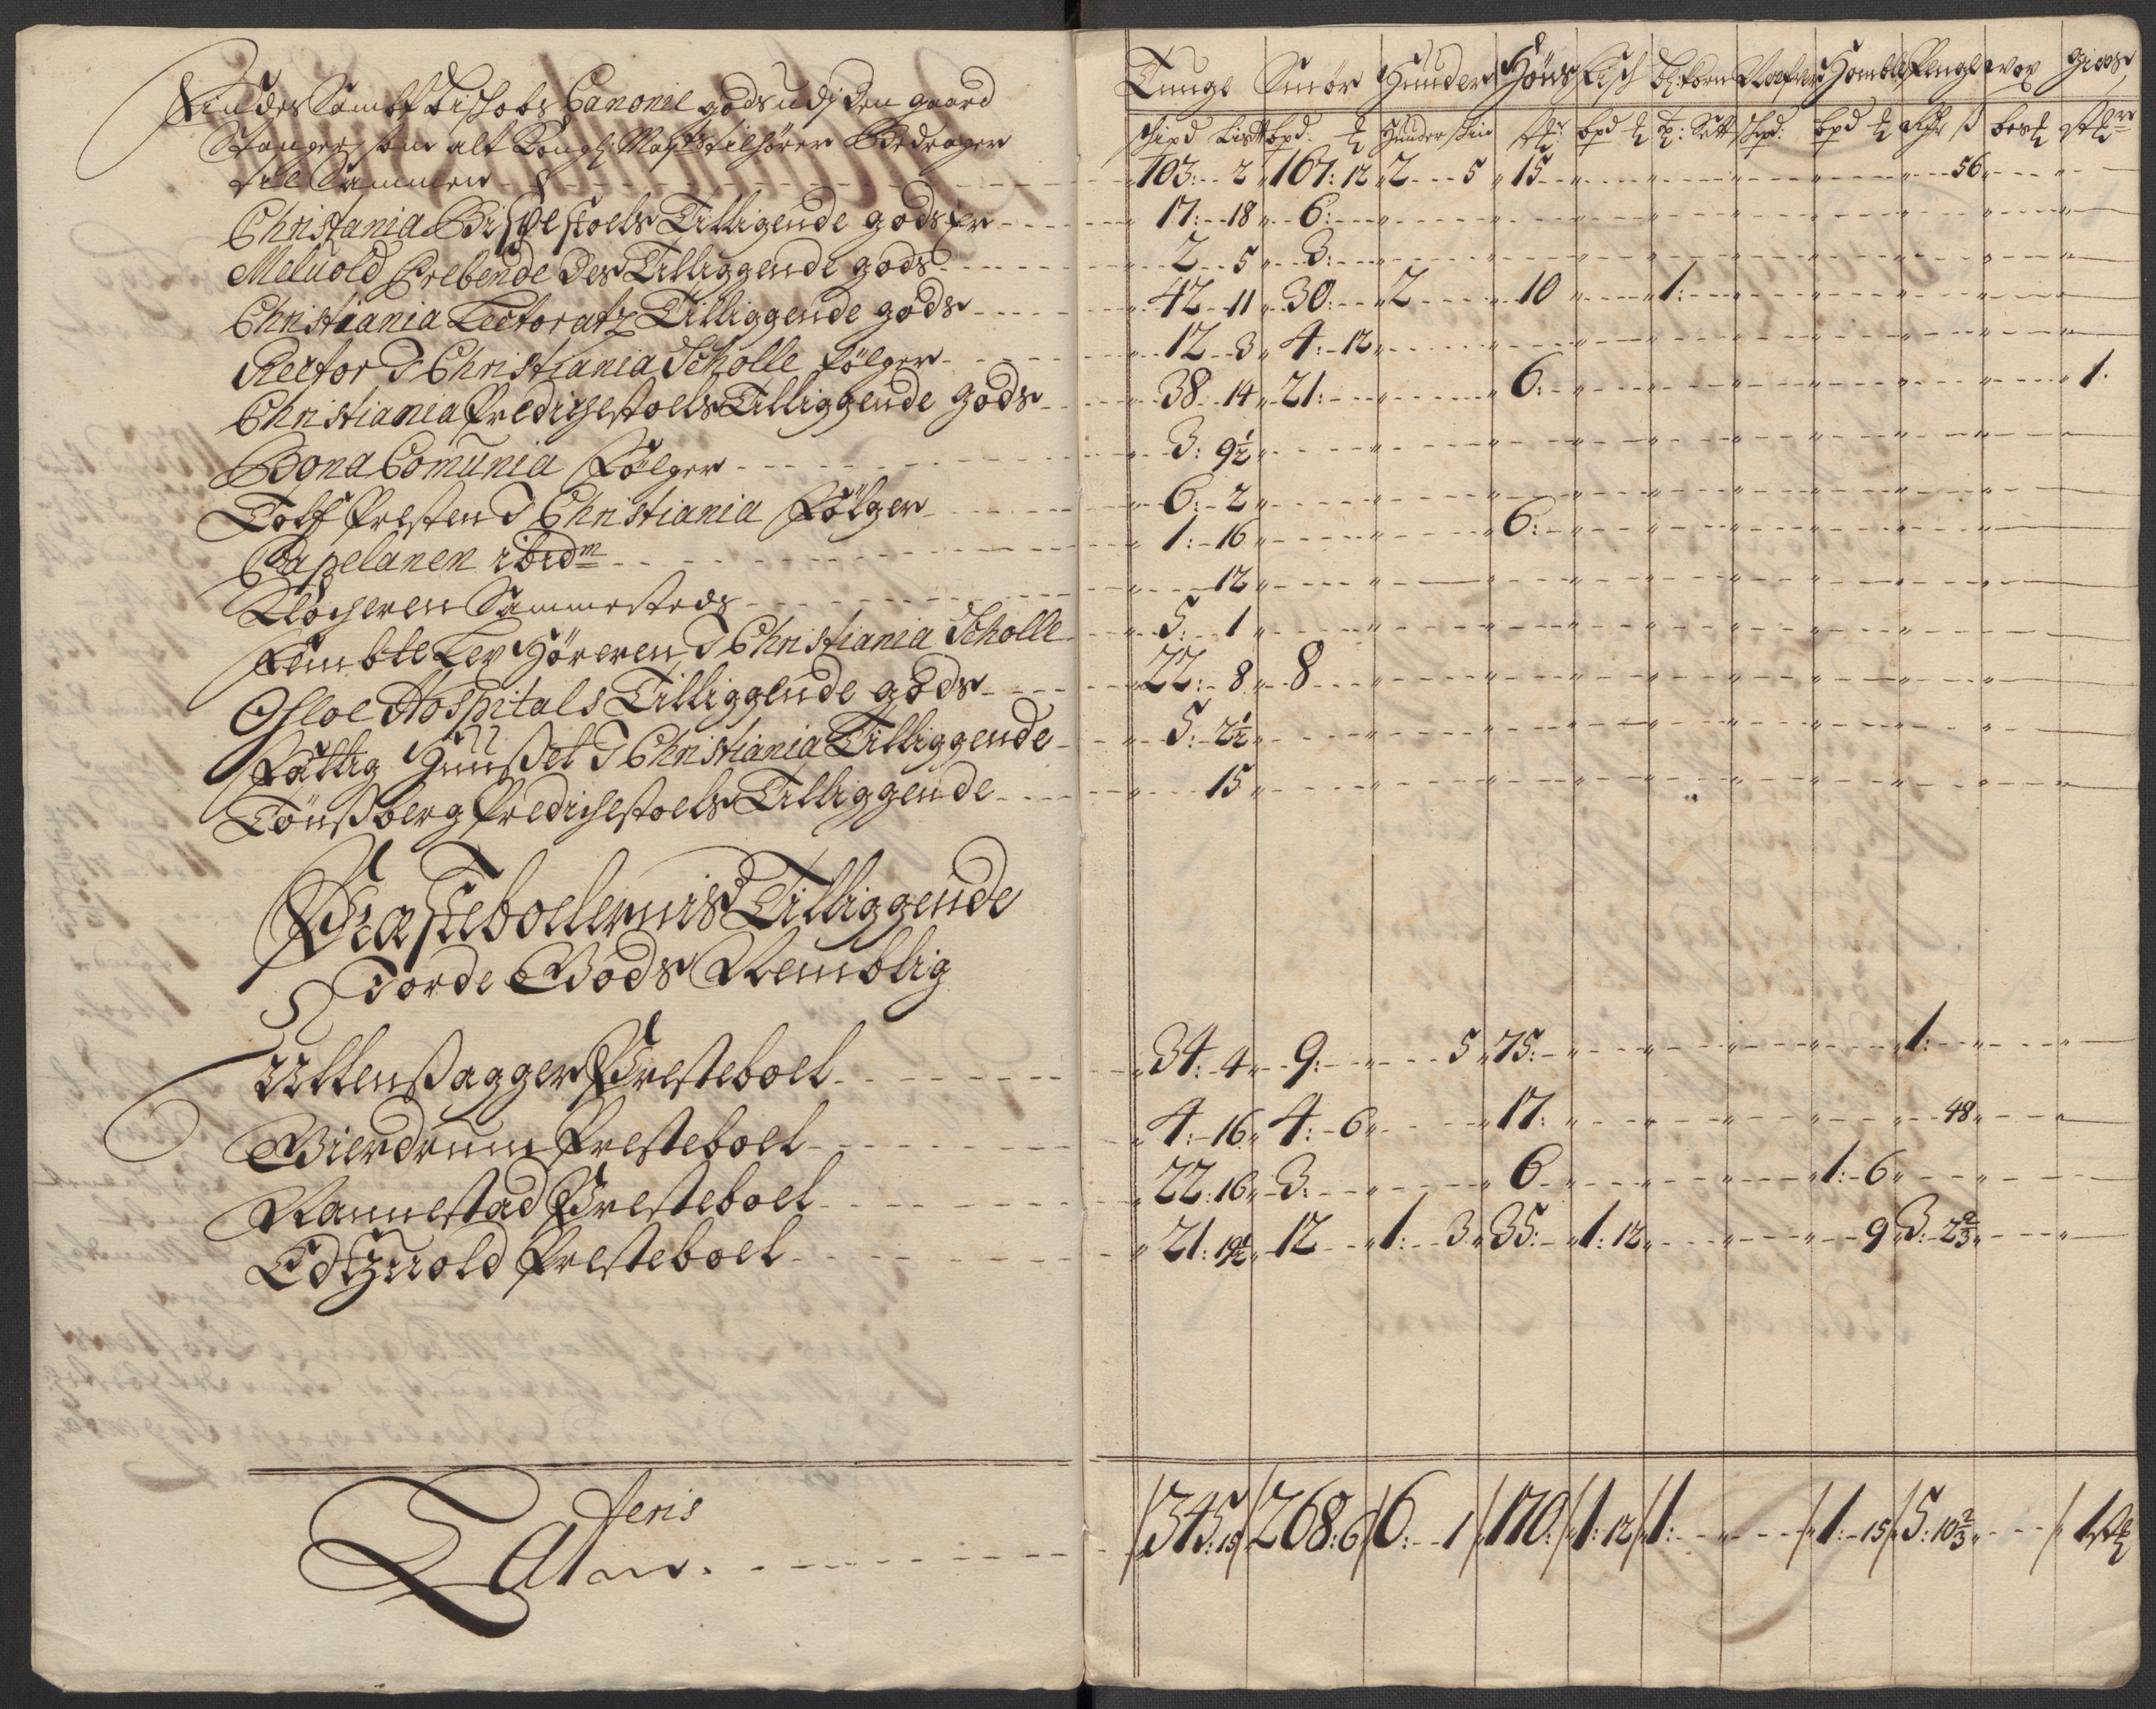 Findes Sambt Bischobs Canonie gods udj den gaard
Stanger, som alt Kongl: Mayts tilhörer Bedrager
til Sammen
Christania Bispestoels Tilligende gods er
Meluold Prebende des Tilliggende gods
Christiania Lectoratz Tilliggende gods
Rector J Christiania Scholle fölger
Christiania Predichestoels Tilliggende gods
Bona Comunia Fölger
Tolf Presten J Christiania Fölger
Capelanen ibidm
Klocheren Sammesteds
Fembte Lex Höreren J Christiania Scholle
Osloe Hospitals Tilliggende gods
Fattig Huuset J Christiania Tilliggende
Tönsberg Predichestoels Tilliggende
Præsteboelernis Tilliggende
Jorde Gods Nemblig
Ullensagger Presteboel
Gierdrum Presteboel
Nannestad Presteboel
Edtzuold Presteboel
Lateris
Tunge Smör Huuder Höns Fisch bl: korn Hombl Penge vox
103: 2 167: 12 2 5 15 56
17: 18 6:
2 5 3:
42 11 30: 2 10 1:
12 3 4: 12
38 14 21: 6: 1.
3: 9½
6: 2
1: 16 6:
12
5: 1
22: 8 8
5: 2½
15
34: 4 9: 5 75: 1:
4: 16 4: 6 17: 48
22: 16 3: 6 1: 6
21: 19½ 12 1: 3 35: 1: 12 9 3: 2⅔
345: 15 268: 6 6: 1 170: 1: 12 1: 1: 15 5: 10⅔ 1